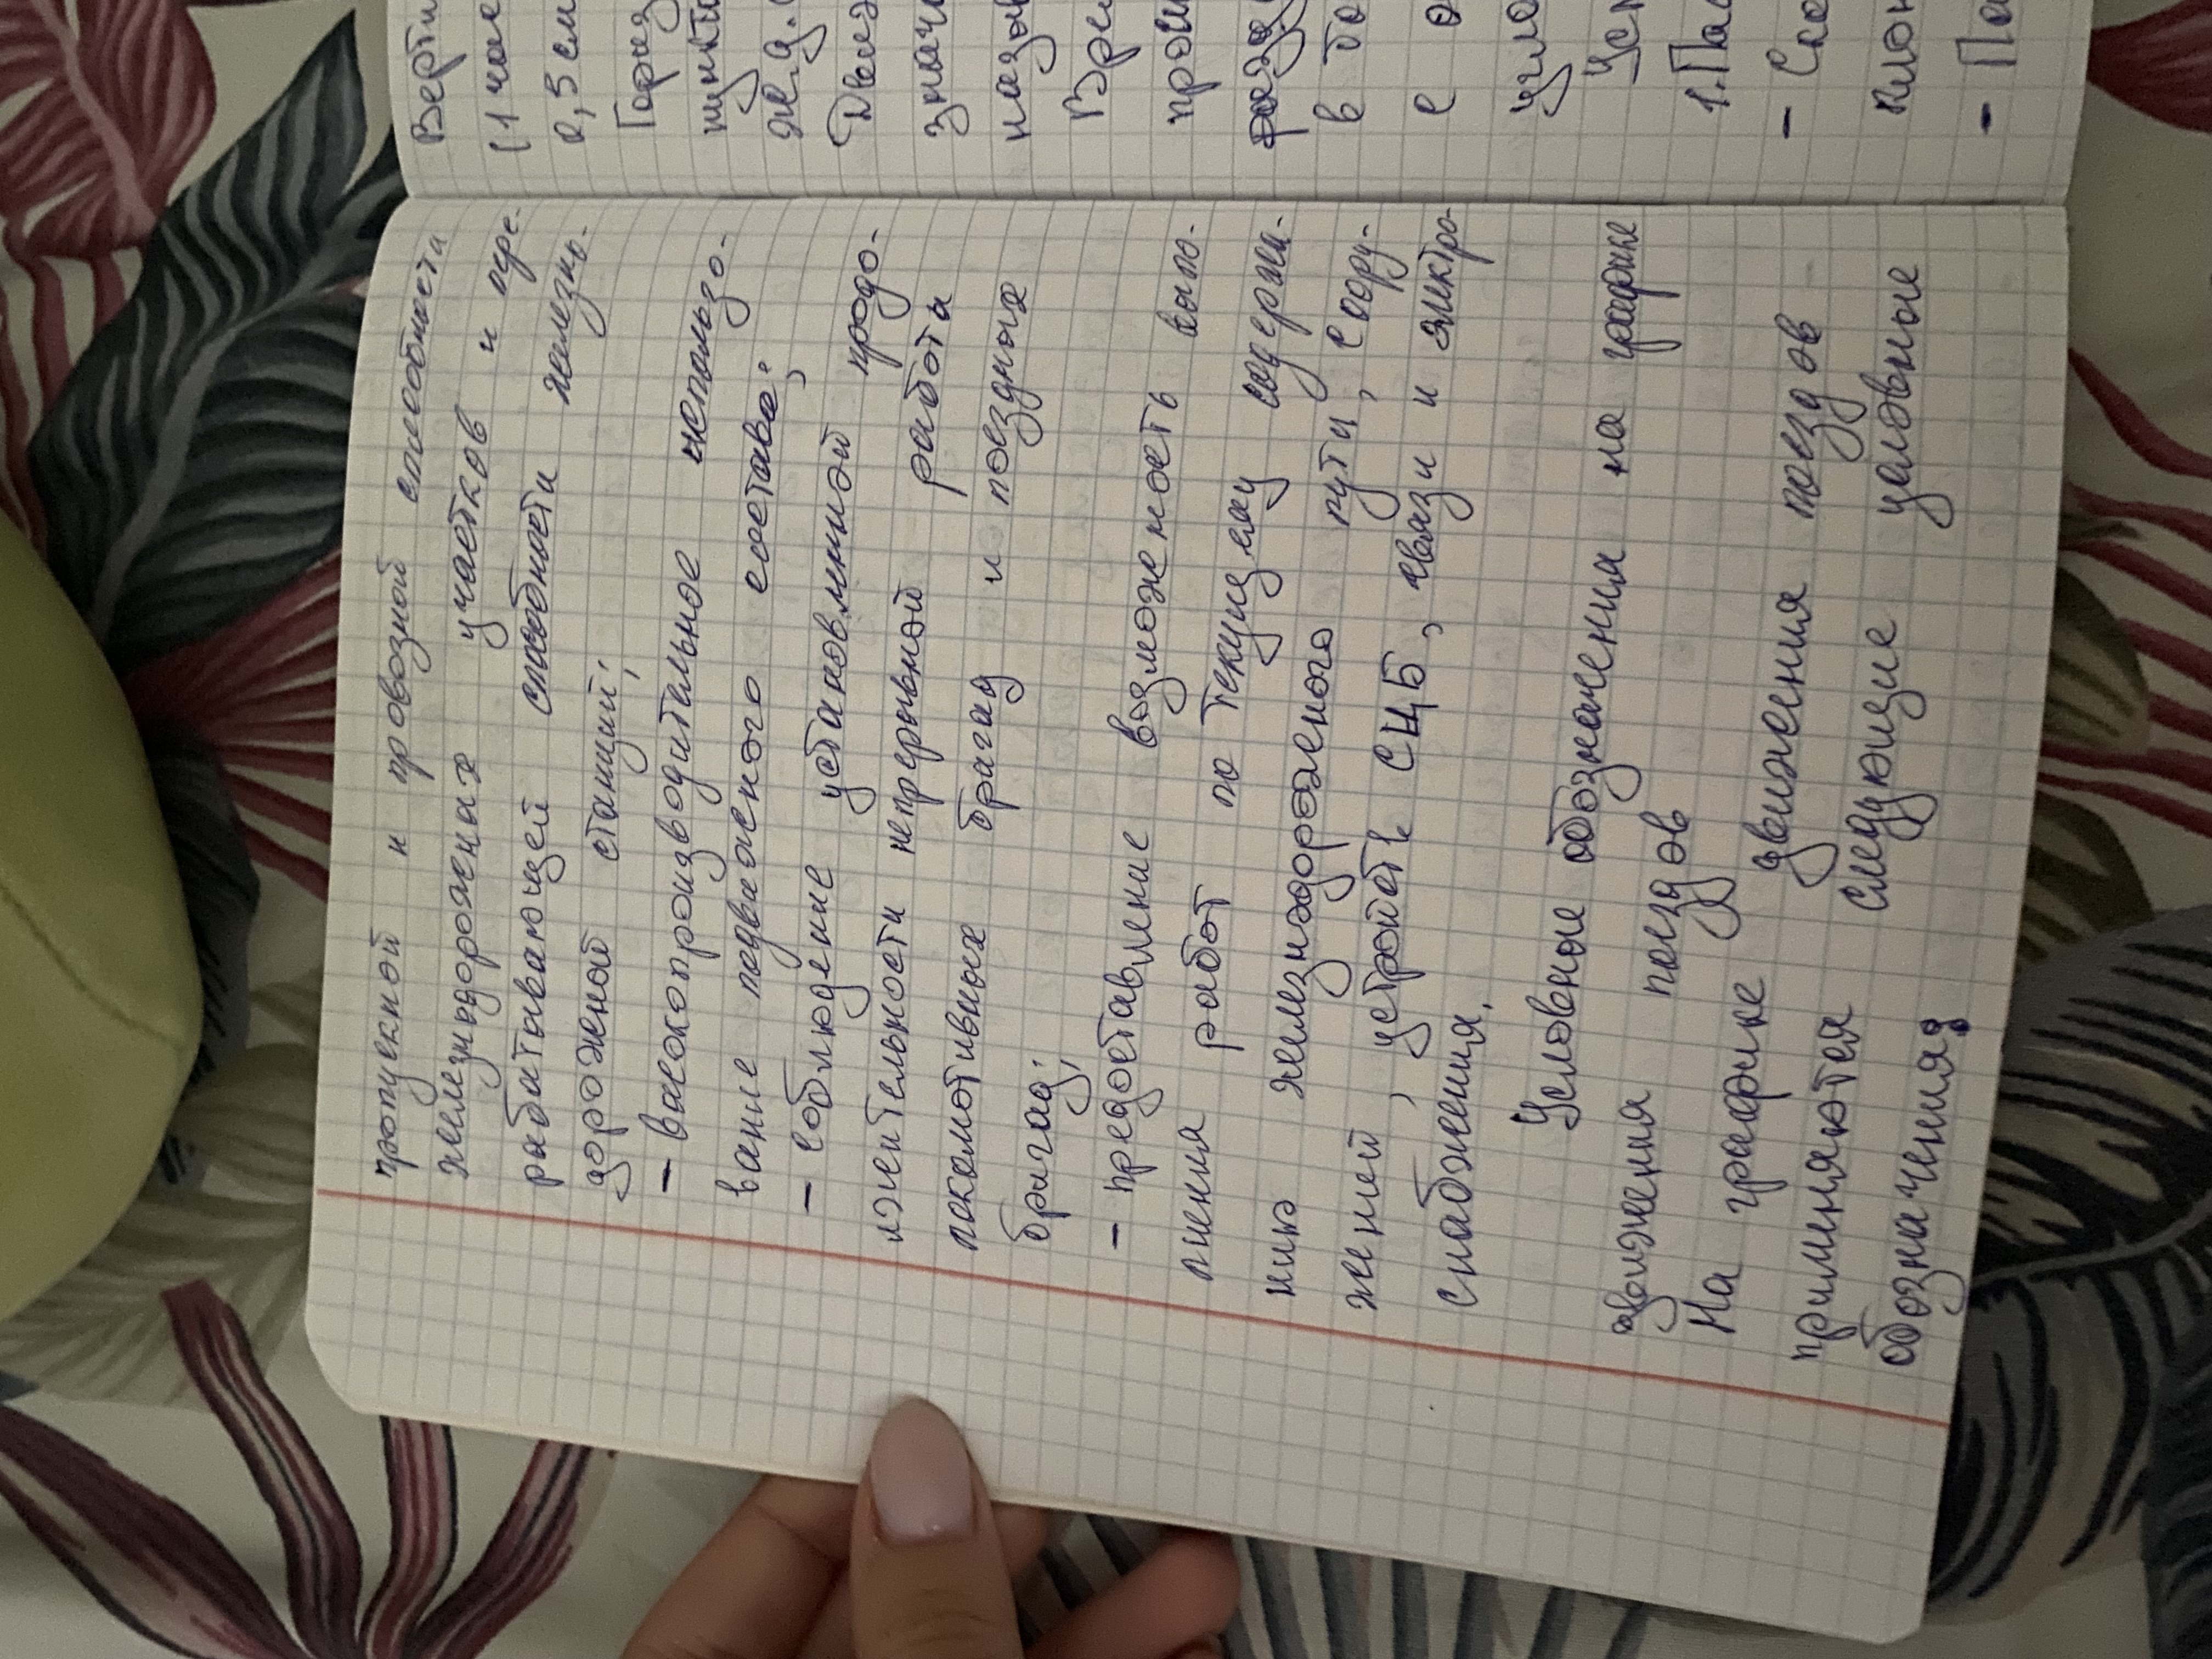 пропускной и провозной способности
железнодорожных участков и пере-
рабатывающей способности железно-
дорожной станций;
– высокопроизводительное использо-
вание подвижного состава;
– соблюдение установленной продо-
лжительности непрерывной работы
локомотивных бригад и поездных
бригад;
– предоставление возможность выпо-
лнения работ по текущему содержа-
нию железнодорожного пути, соору-
жений, устройств СЦБ, связи и электро-
снабжения.
Условные обозначения на графике
движения поездов
На графике движения поездов
применяются следующие условные
обозначения:
Верти
(1 часе
0,5 см
Гориз
пункти
жел.д.
Движ
значе
назыв
Вре
прои
в то
с о
угло
Усл
1. Пас
– Ско
– Па